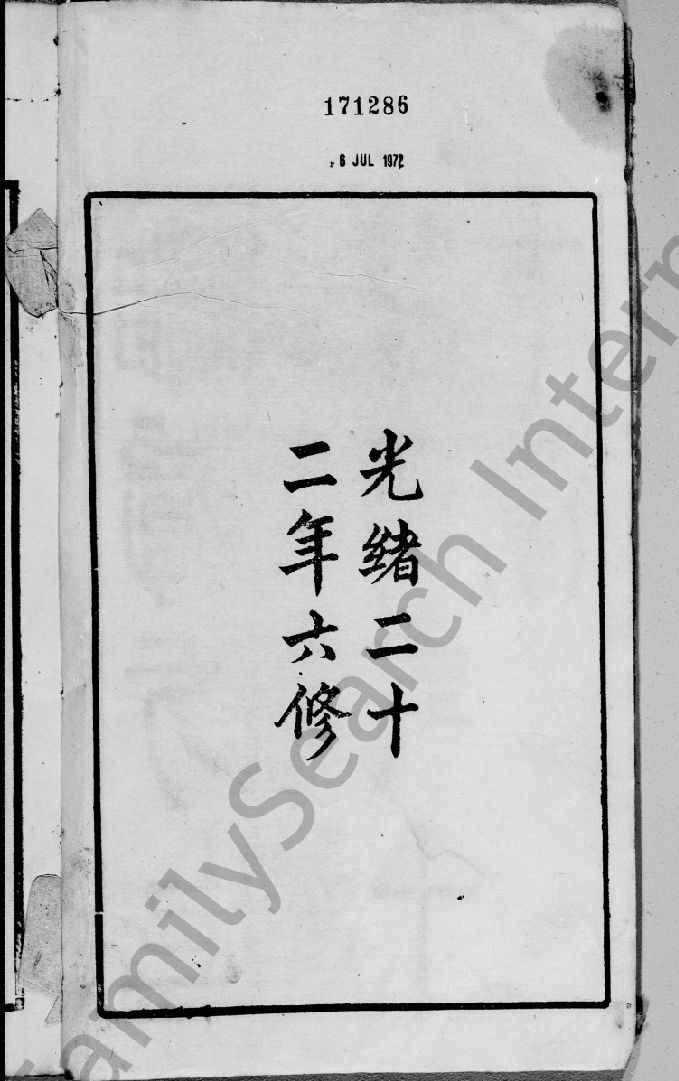 171286
6 JUL 1972
光緒二十
二年六修
FamilySearch Intern